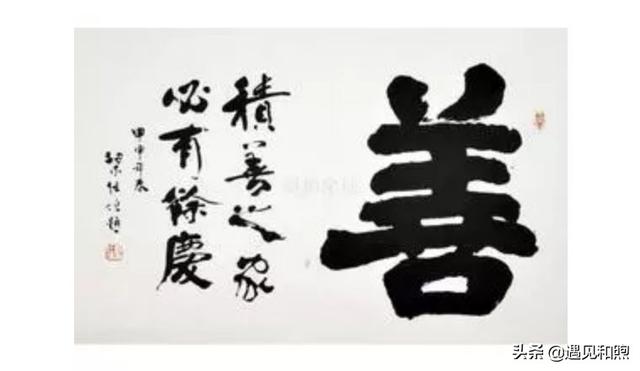 善
積善之家
必有餘慶
甲申年春
头条 @遇见和煦